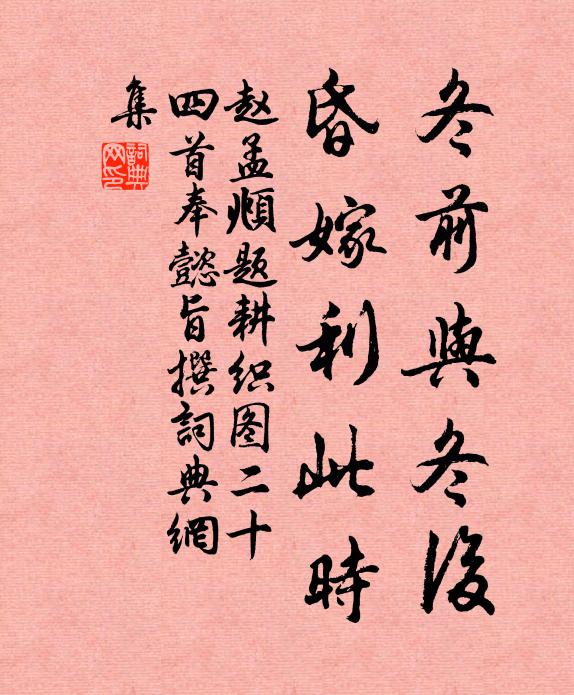 冬前與冬後
昏嫁利此時
赵孟頫题耕织图二十
四首奉懿旨撰詞典網
集
詞典
网印